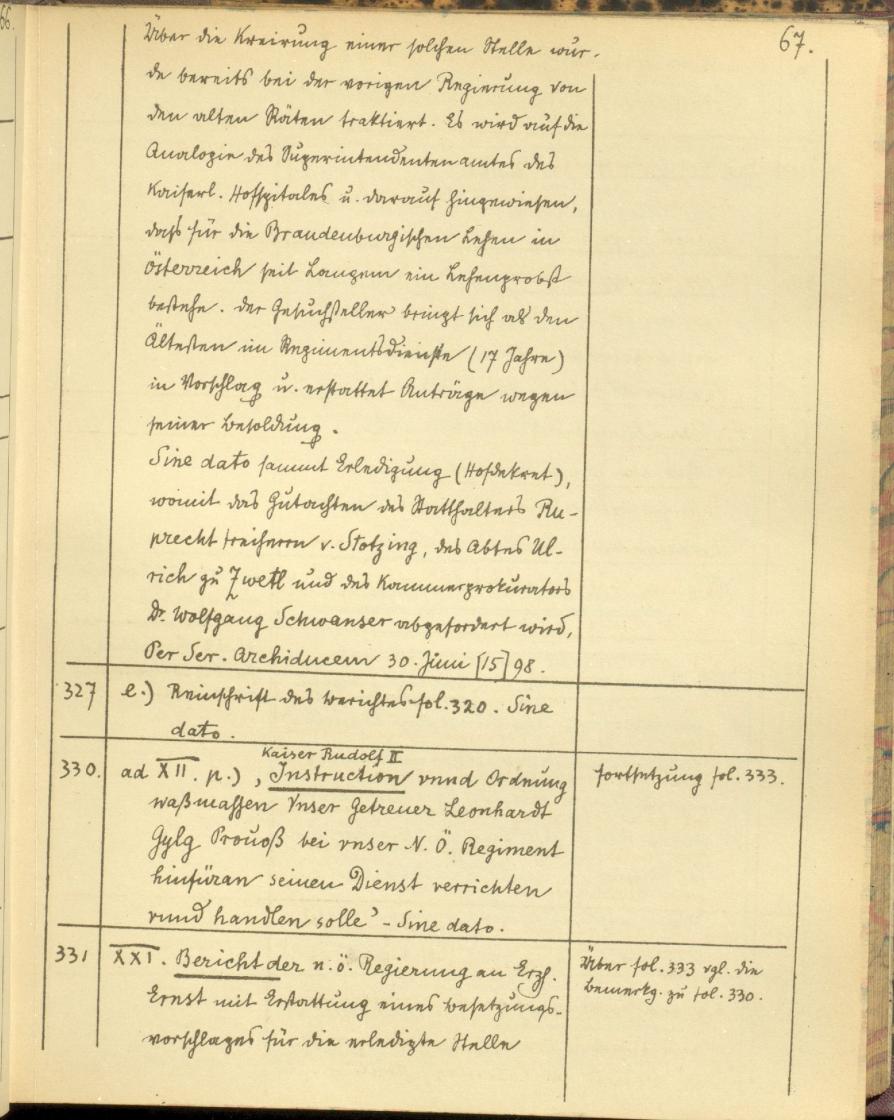 66.
67.
Über die Kreirung einer solchen Stelle wur-
de bereits bei der vorigen Regierung von
den alten Räten traktiert. Es wird auf die
Analogie des Superintendentenamtes des
Kaiserl. Hofspitales u. darauf hingewiesen,
daß für die Brandenburgischen Lehen in
Österreich seit Langem ein Lehenprobst
bestehe. Der Gesuchsteller bringt sich als den
Ältesten im Regimentsdienste (17 Jahre)
in Vorschlag u. erstattet Anträge wegen
seiner Besoldung.
Sine dato sammt Erledigung (Hofdekret),
womit das Gutachten des Statthalters Ru-
precht Freiherrn v. Stotzing, des Abtes Ul-
rich zu Zwetl und des Kammerprokurators
Dr. Wolfgang Schwanser abgefordert wird,
Per Ser. Archiducem 30. Juni [15]98.
327 e.) Reinschrift des Berichtes fol. 320. Sine
dato.
Kaiser Rudolf II
330. ad XII. p.) ‚Instruction vnnd Ordnung
waßmassen Vnser Getreuer Leonhardt
Gylg Prouoß bei vnser N. Ö. Regiment
hinfüran seinen Dienst verrichten
vnnd handlen solle’ - Sine dato.
Fortsetzung fol. 333.
331 XXI. Bericht der n. ö. Regierung an Erzh.
Ernst mit Erstattung eines Besetzungs-
vorschlages für die erledigte Stelle
Über fol. 333 vgl. die
Bemerkg. zu fol. 330.